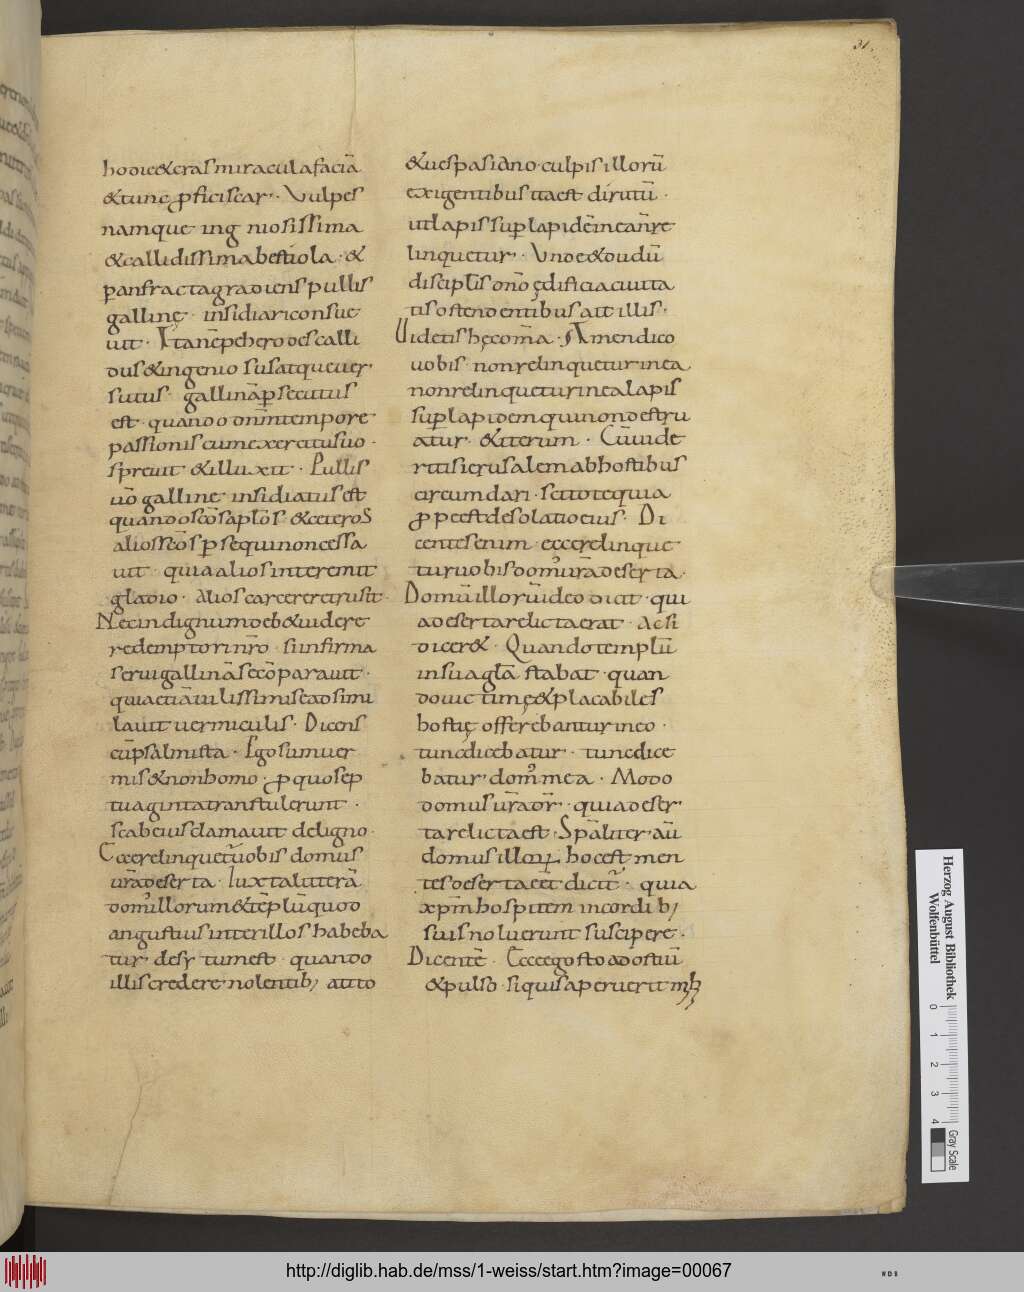 31.
hodie & cras miracula faciā
& tunc ꝓficiscar · Vulpes
namque ing niosissima
& callidissima bestiola · &
panfracta gradiens pullis
galline · insidiari consue
uit · Itanēpe herodes calli
dus & ingenio susatque uer
sutus · gallinā ꝑsecutus
est · quando dnm̄ tempore
passionis cum exercitu suo ·
spreuit & illuxit · Pullis
uō galline insidiatus est
quando scōs aplōs & ceteros
alios scōs ꝑsequi non cessa
uit · quia alios interemit
gladio · alios carcere retrusit ·
Nec indignum debet uidere
redemptori nr̄o · si infirma
serui gallinā se cōparauit ·
quia etiā uilissimis ead simi
lauit uermiculis · Dicens
cū psalmista · Ego sum uer
mis & non homo · ꝓ quo sep
tuaginta transtulerunt ·
scabeius clamauit de ligno ·
Ecce relinquet̄ uobis domus
ur̄a deserta · Iuxta litterā
dom' illorum & tēplū quod
angustius inter illos habeba
tur · desr tum est · quando
illis credere nolentib; a tito
& uespasiano · culpis illorū
exigentibus ita est dirutū ·
ut lapis suꝑ lapidē in ea nr̄e
linquetur · Vnde & dudū
discipl̄is om̄o ędificia ciuita
tis ostendentibus ait illis ·
Uidetis hęc om̄a · Amen dico
uobis · non relinquetur in ea
non relinquetur in ea lapis
suꝑ lapidem qui non destru
atur · & iterum · Cū uide
ritis ierusalem ab hostibus
circumdari · scitote quia
ꝓpe est desolatio eius · Di
cente senim · ecce relinque
tur uobis dom' ur̄a deserta ·
Domū illorū ideo dicit · qui
ad eserta relicta erat · Ac si
dicer& · Quando templū
in sua gl̄a stabat · quan
do uictimę & placabiles
hostię offerebantur in eo ·
tunc dicebatur · tunc dice
batur · dom' mea · Modo
domus ur̄a dr̄ · quia deser
ta relicta est · Spāliter · aū
domus illoꝝ hoc est men
tes deserta eēt dicit̄ · quia
xpm̄ hospitem in cordib;
suis noluerunt suscipere ·
Dicentē · Ecce ego sto ad ostiū
& pulso · si quis aperuerit mihi
Herzog August Bibliothek
Wolfenbüttel
0 1 2 3 4
Gray Scale
http://diglib.hab.de/mss/1-weiss/start.htm?image=00067